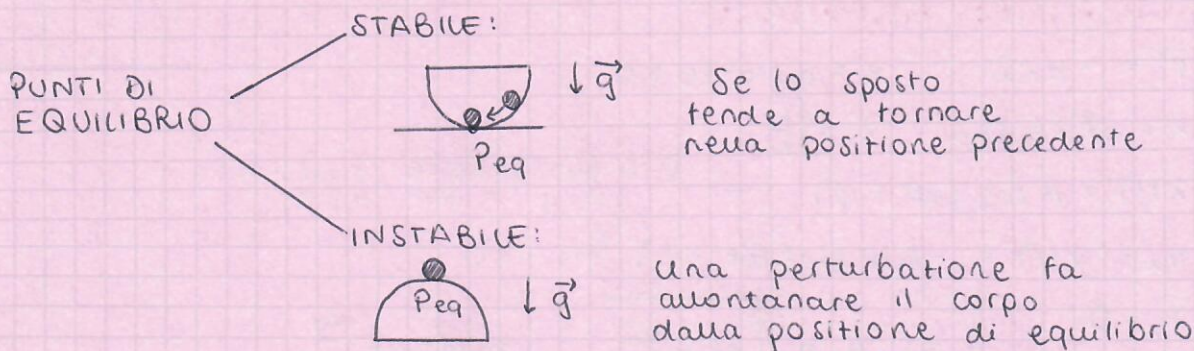 STABILE:
PUNTI DI
EQUILIBRIO
↓ g⃗
Peq
Se lo sposto
tende a tornare
nella posizione precedente
INSTABILE:
Peq
↓ g⃗
una perturbazione fa
allontanare il corpo
dalla posizione di equilibrio